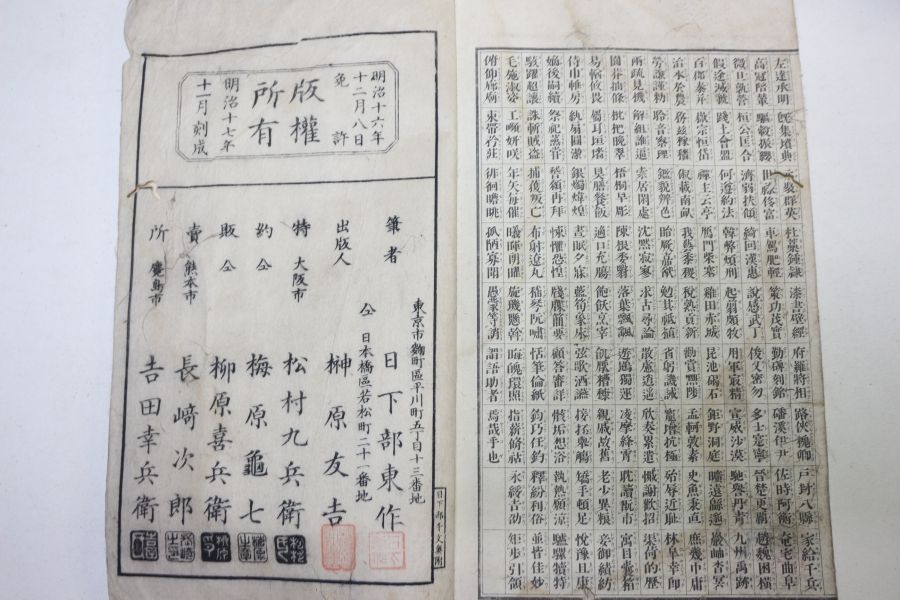 左達承明 既集墳典 亦聚群英 杜藁鍾隷 漆書壁經 府羅將相 路俠槐卿 戸封八縣 家給千兵
高冠陪輦 驅轂振纓 世祿侈富 車駕肥輕 策功茂實 勒碑刻銘 磻溪伊尹 佐時阿衡 奄宅曲阜
微旦孰營 桓公匡合 濟弱扶傾 綺回漢惠 說感武丁 俊乂密勿 多士寔寧 晉楚更霸 趙魏困橫
假途滅虢 踐土會盟 何遵約法 韓弊煩刑 起翦頗牧 用軍最精 宣威沙漠 馳譽丹青 九州禹跡
百郡秦并 嶽宗恒岱 禪主云亭 雁門紫塞 雞田赤城 昆池碣石 鉅野洞庭 曠遠緜邈 巖岫杳冥
治本於農 務茲稼穡 俶載南畝 我藝黍稷 稅熟貢新 勸賞黜陟 孟軻敦素 史魚秉直 庶幾中庸
勞謙謹勅 聆音察理 鑑貌辨色 貽厥嘉猷 勉其祗植 省躬譏誡 寵增抗極 殆辱近恥 林皋幸即
兩疏見機 解組誰逼 索居閒處 沈默寂寥 求古尋論 散慮逍遙 欣奏累遣 慼謝歡招 渠荷的歷
園莽抽條 枇杷晚翠 梧桐早彫 陳根委翳 落葉飄颻 遊鵾獨運 凌摩絳霄 耽讀翫市 寓目囊箱
易輶攸畏 屬耳垣墻 具膳餐飯 適口充腸 飽飫烹宰 飢厭糟糠 親戚故舊 老少異糧 妾御績紡
侍巾帷房 紈扇圓潔 銀燭煒煌 晝眠夕寐 藍筍象床 弦歌酒讌 接杯舉觴 矯手頓足 悅豫且康
嫡後嗣續 祭祀蒸嘗 稽顙再拜 悚懼恐惶 牋牒簡要 顧答審詳 骸垢想浴 執熱願涼 驢騾犢特
駭躍超驤 誅斬賊盜 捕獲叛亡 布射遼丸 嵇琴阮嘯 恬筆倫紙 鈞巧任釣 釋紛利俗 並皆佳妙
毛施淑姿 工嚬妍咲 年矢每催 曦暉朗曜 旋璣懸斡 晦魄環照 指薪脩祜 永綏吉劭 矩步引領
俯仰廊廟 束帶矜莊 徘徊瞻眺 孤陋寡聞 愚蒙等誚 謂語助者 焉哉乎也
明治十六年
十二月八日
免許
版權
所有
明治十七年
十一月刻成
東京市麹町區平川町五丁目十三番地
筆者 日下部東作
仝 日本橋區若松町二十一番地
出版人 榊原友吉
特 大阪市 松村九兵衛
約 仝 梅原龜七
販 仝 柳原喜兵衛
賣 熊本市 長﨑次郎
所 鹿島市 吉田幸兵衛